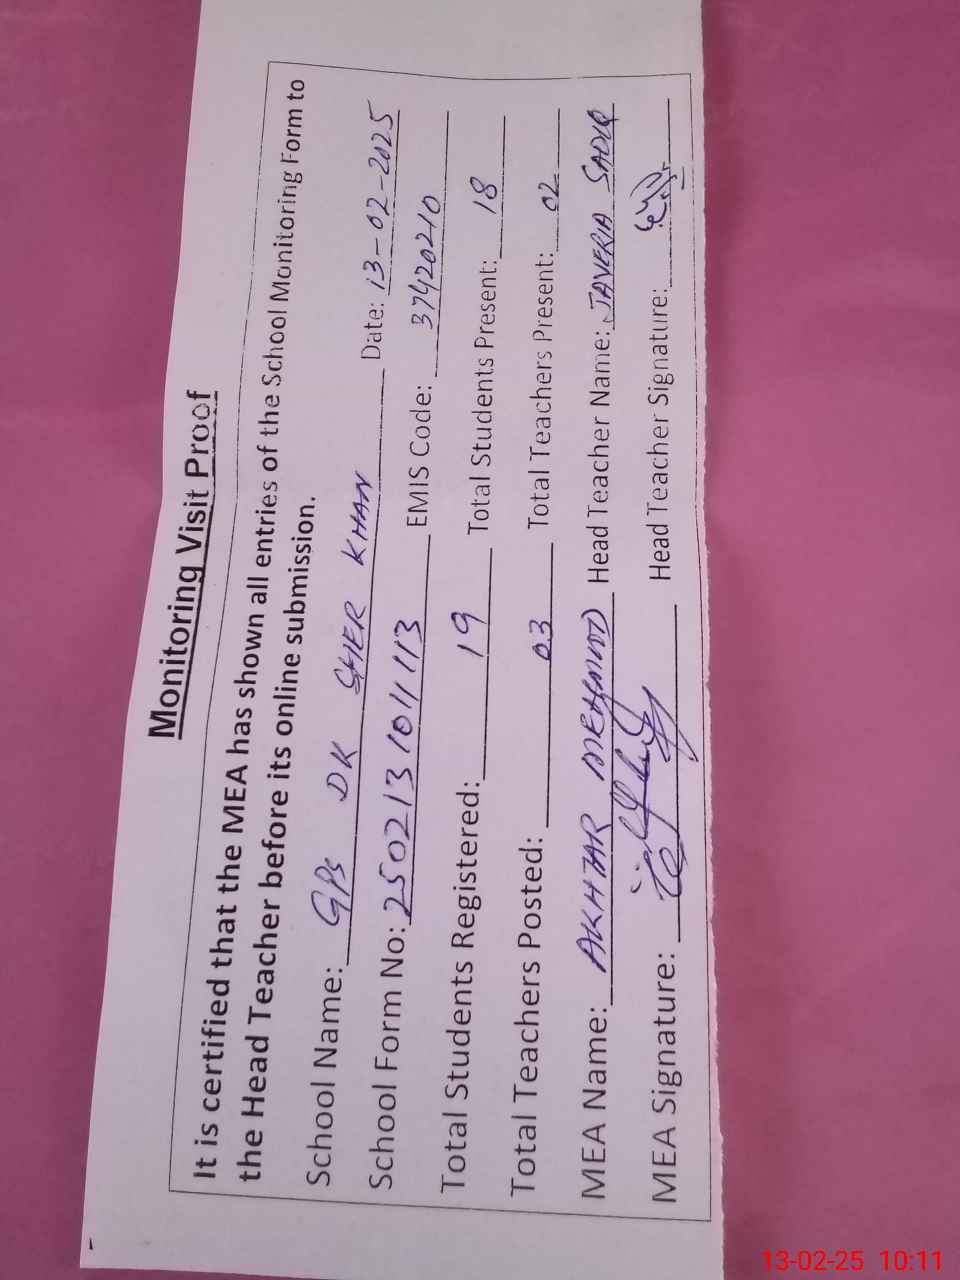 Monitoring Visit Proof
It is certified that the MEA has shown all entries of the School Monitoring Form to
the Head Teacher before its online submission.
School Name: GPS DK SHER KHAN Date: 13-02-2025
School Form No: 250213101113 EMIS Code: 37420210
Total Students Registered: 19 Total Students Present: 18
Total Teachers Posted: 03 Total Teachers Present: 02
MEA Name: AKHTAR MEHMOOD Head Teacher Name: JAVERIA SADIQ
MEA Signature: Head Teacher Signature:
13-02-25 10:11